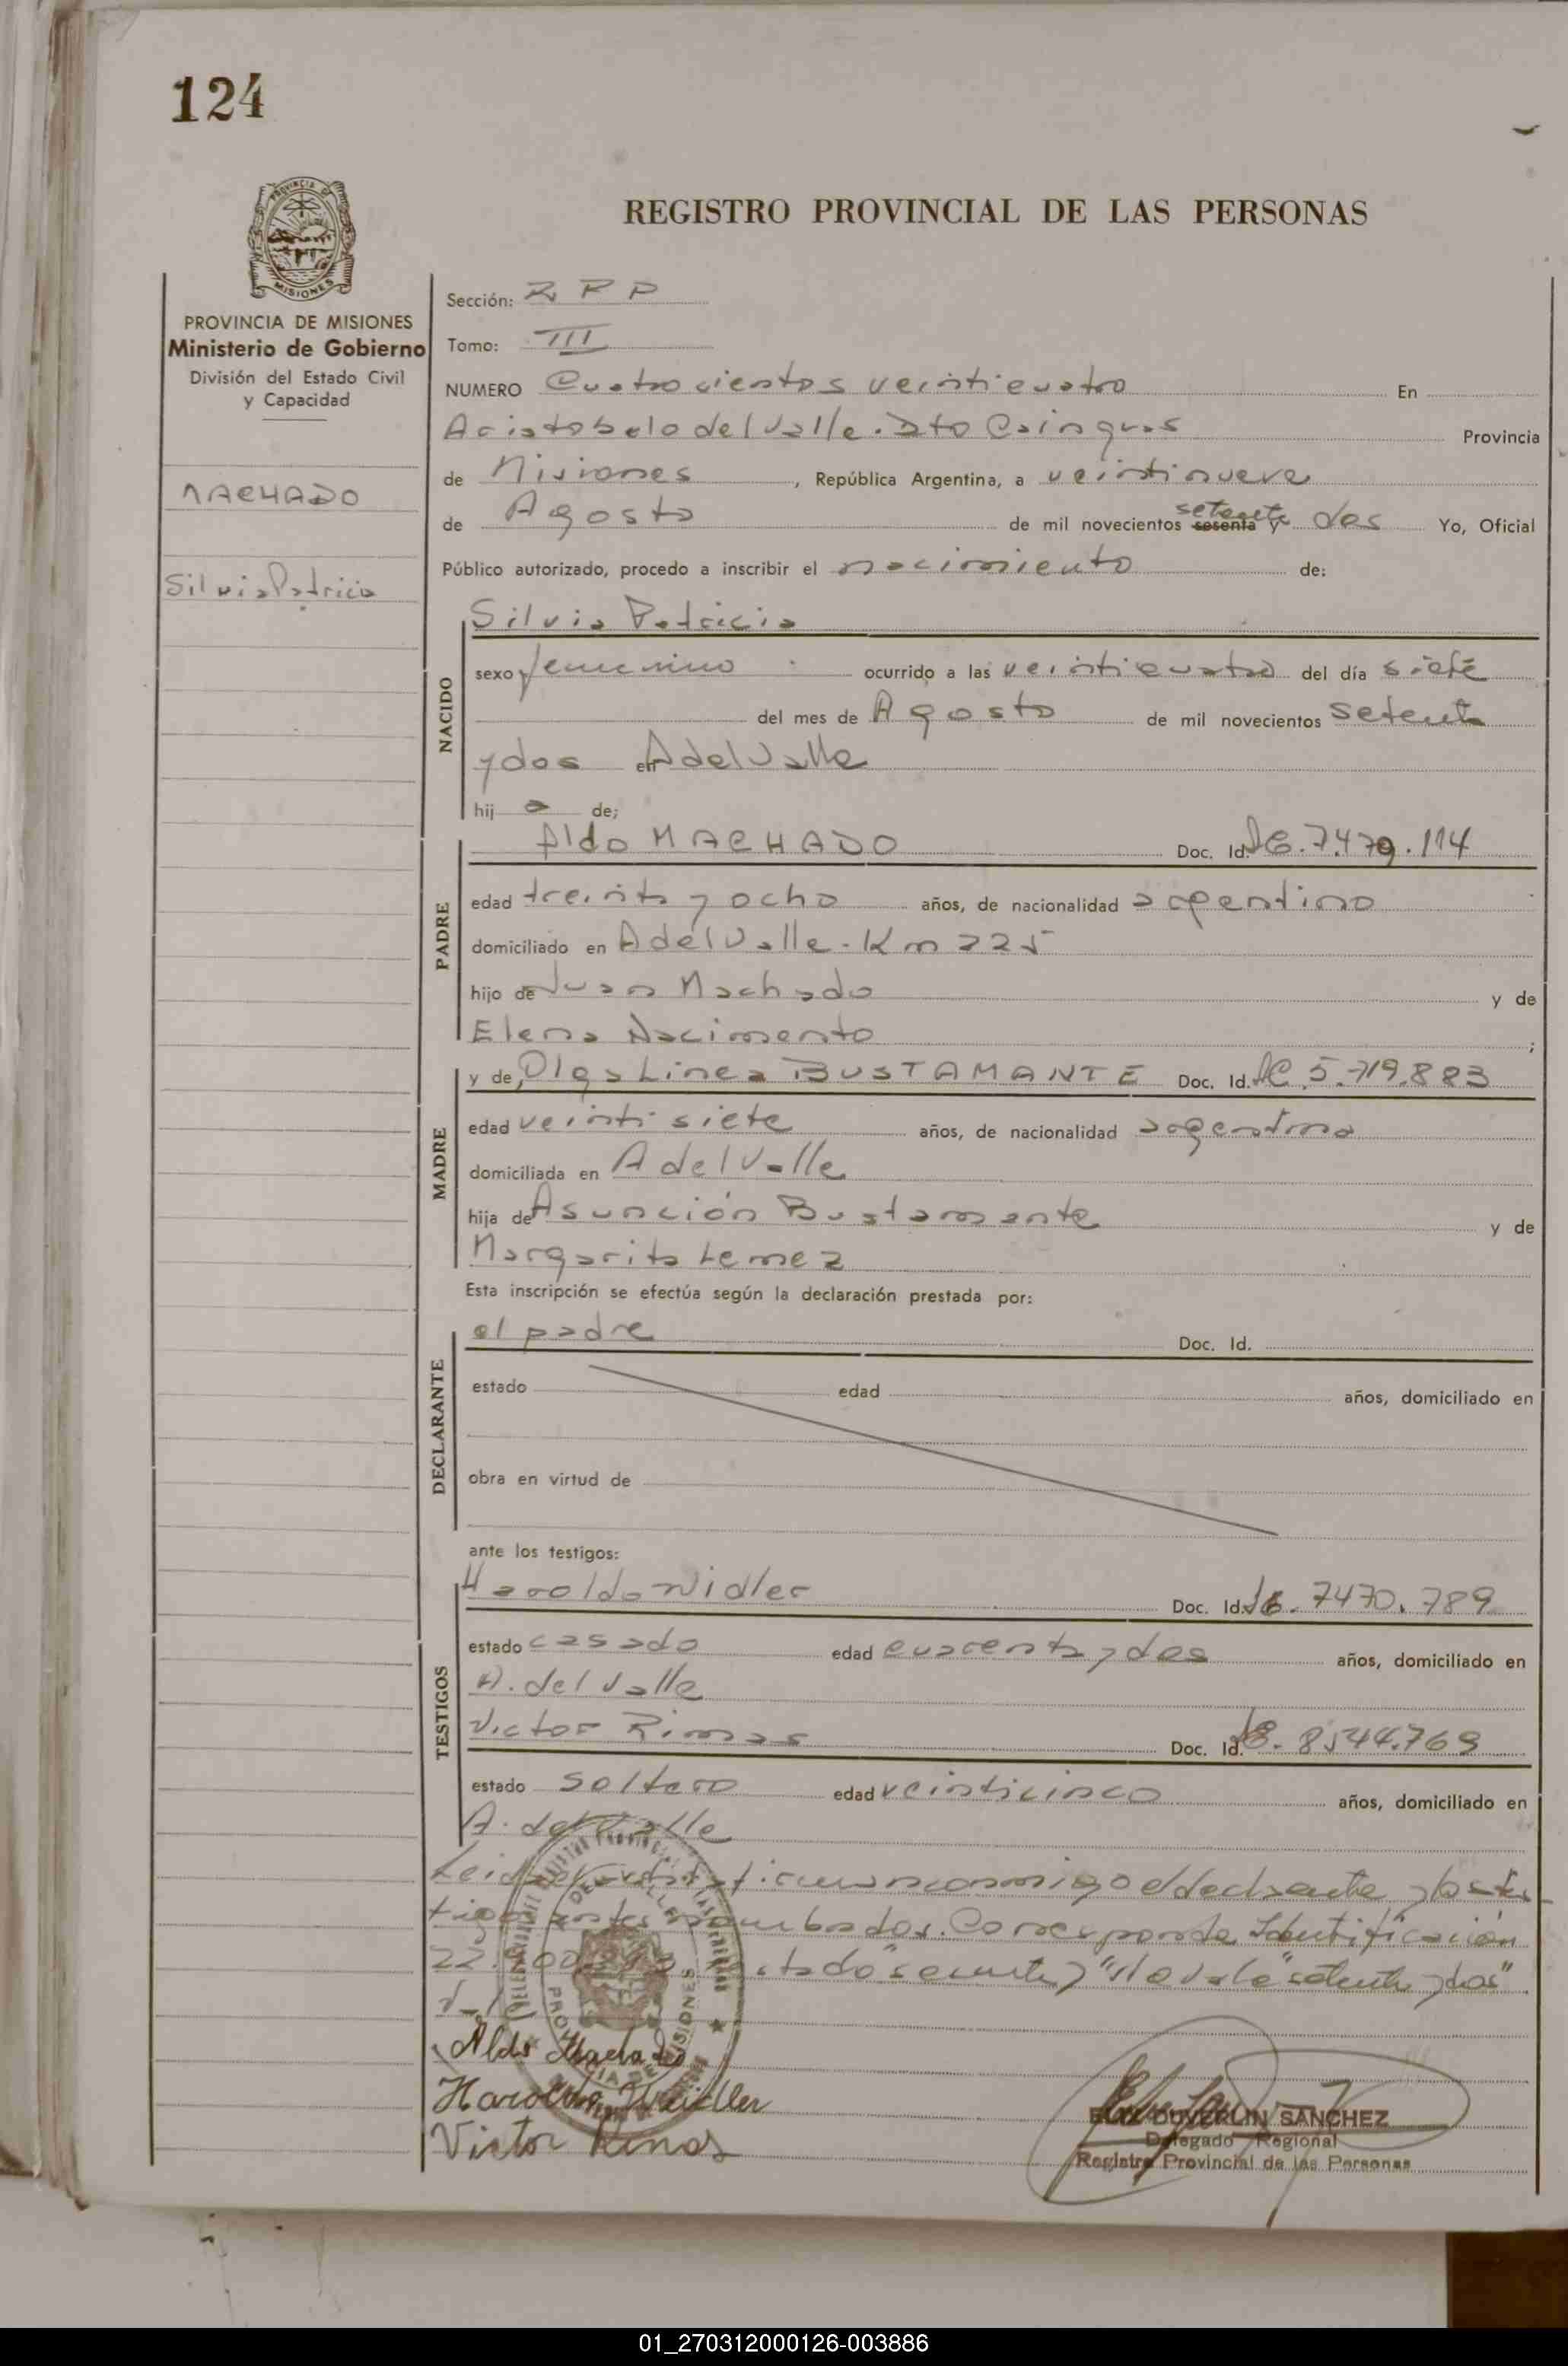 124
PROVINCIA DE
MISIONES
REGISTRO PROVINCIAL DE LAS PERSONAS
PROVINCIA DE MISIONES
Ministerio de Gobierno
División del Estado Civil
y Capacidad
MACHADO
Silvia Patricia
Sección: R P P
Tomo: III
NUMERO Cuatrocientos veinticuatro En
Aristobulo del Valle. Dto Cainguas Provincia
de Misiones, República Argentina, a veintinueve
de Agosto de mil novecientos sesenta setenta y dos Yo, Oficial
Público autorizado, procedo a inscribir el nacimiento de:
NACIDO
Silvia Patricia
sexo femenino ocurrido a las veinticuatro del día siete
del mes de Agosto de mil novecientos setenta
y dos en A del Valle
hij a de;
PADRE
Aldo MACHADO Doc. Id. 7.479.114
edad treinta y ocho años, de nacionalidad argentino
domiciliado en A del Valle. Km 225
hijo de Juan Machado y de
Elena Nacimento;
MADRE
y de Olga Linea BUSTAMANTE Doc. Id. LC 5.719.883
edad veinti siete años, de nacionalidad argentina
domiciliada en A del Valle
hija de Asunción Bustamante y de
Margarita Lemez
Esta inscripción se efectúa según la declaración prestada por:
DECLARANTE
el padre Doc. Id.
estado edad años, domiciliado en
obra en virtud de
ante los testigos:
TESTIGOS
Haroldo Widler Doc. Id. 7470.789
estado casado edad cuarenta y dos años, domiciliado en
A. del Valle
Victor Rimas Doc. Id. 8.544.769
estado soltero edad veinticinco años, domiciliado en
A. del Valle
Leida conmigo el declarante y los tes-
tigos antes nombrados. Corresponde Identificación
22. "setenta y dos"
Aldo Machado
Haroldo Weidler
Victor Rimas
DUVERLIN SANCHEZ
Delegado Regional
Registro Provincial de las Personas
01_270312000126-003886